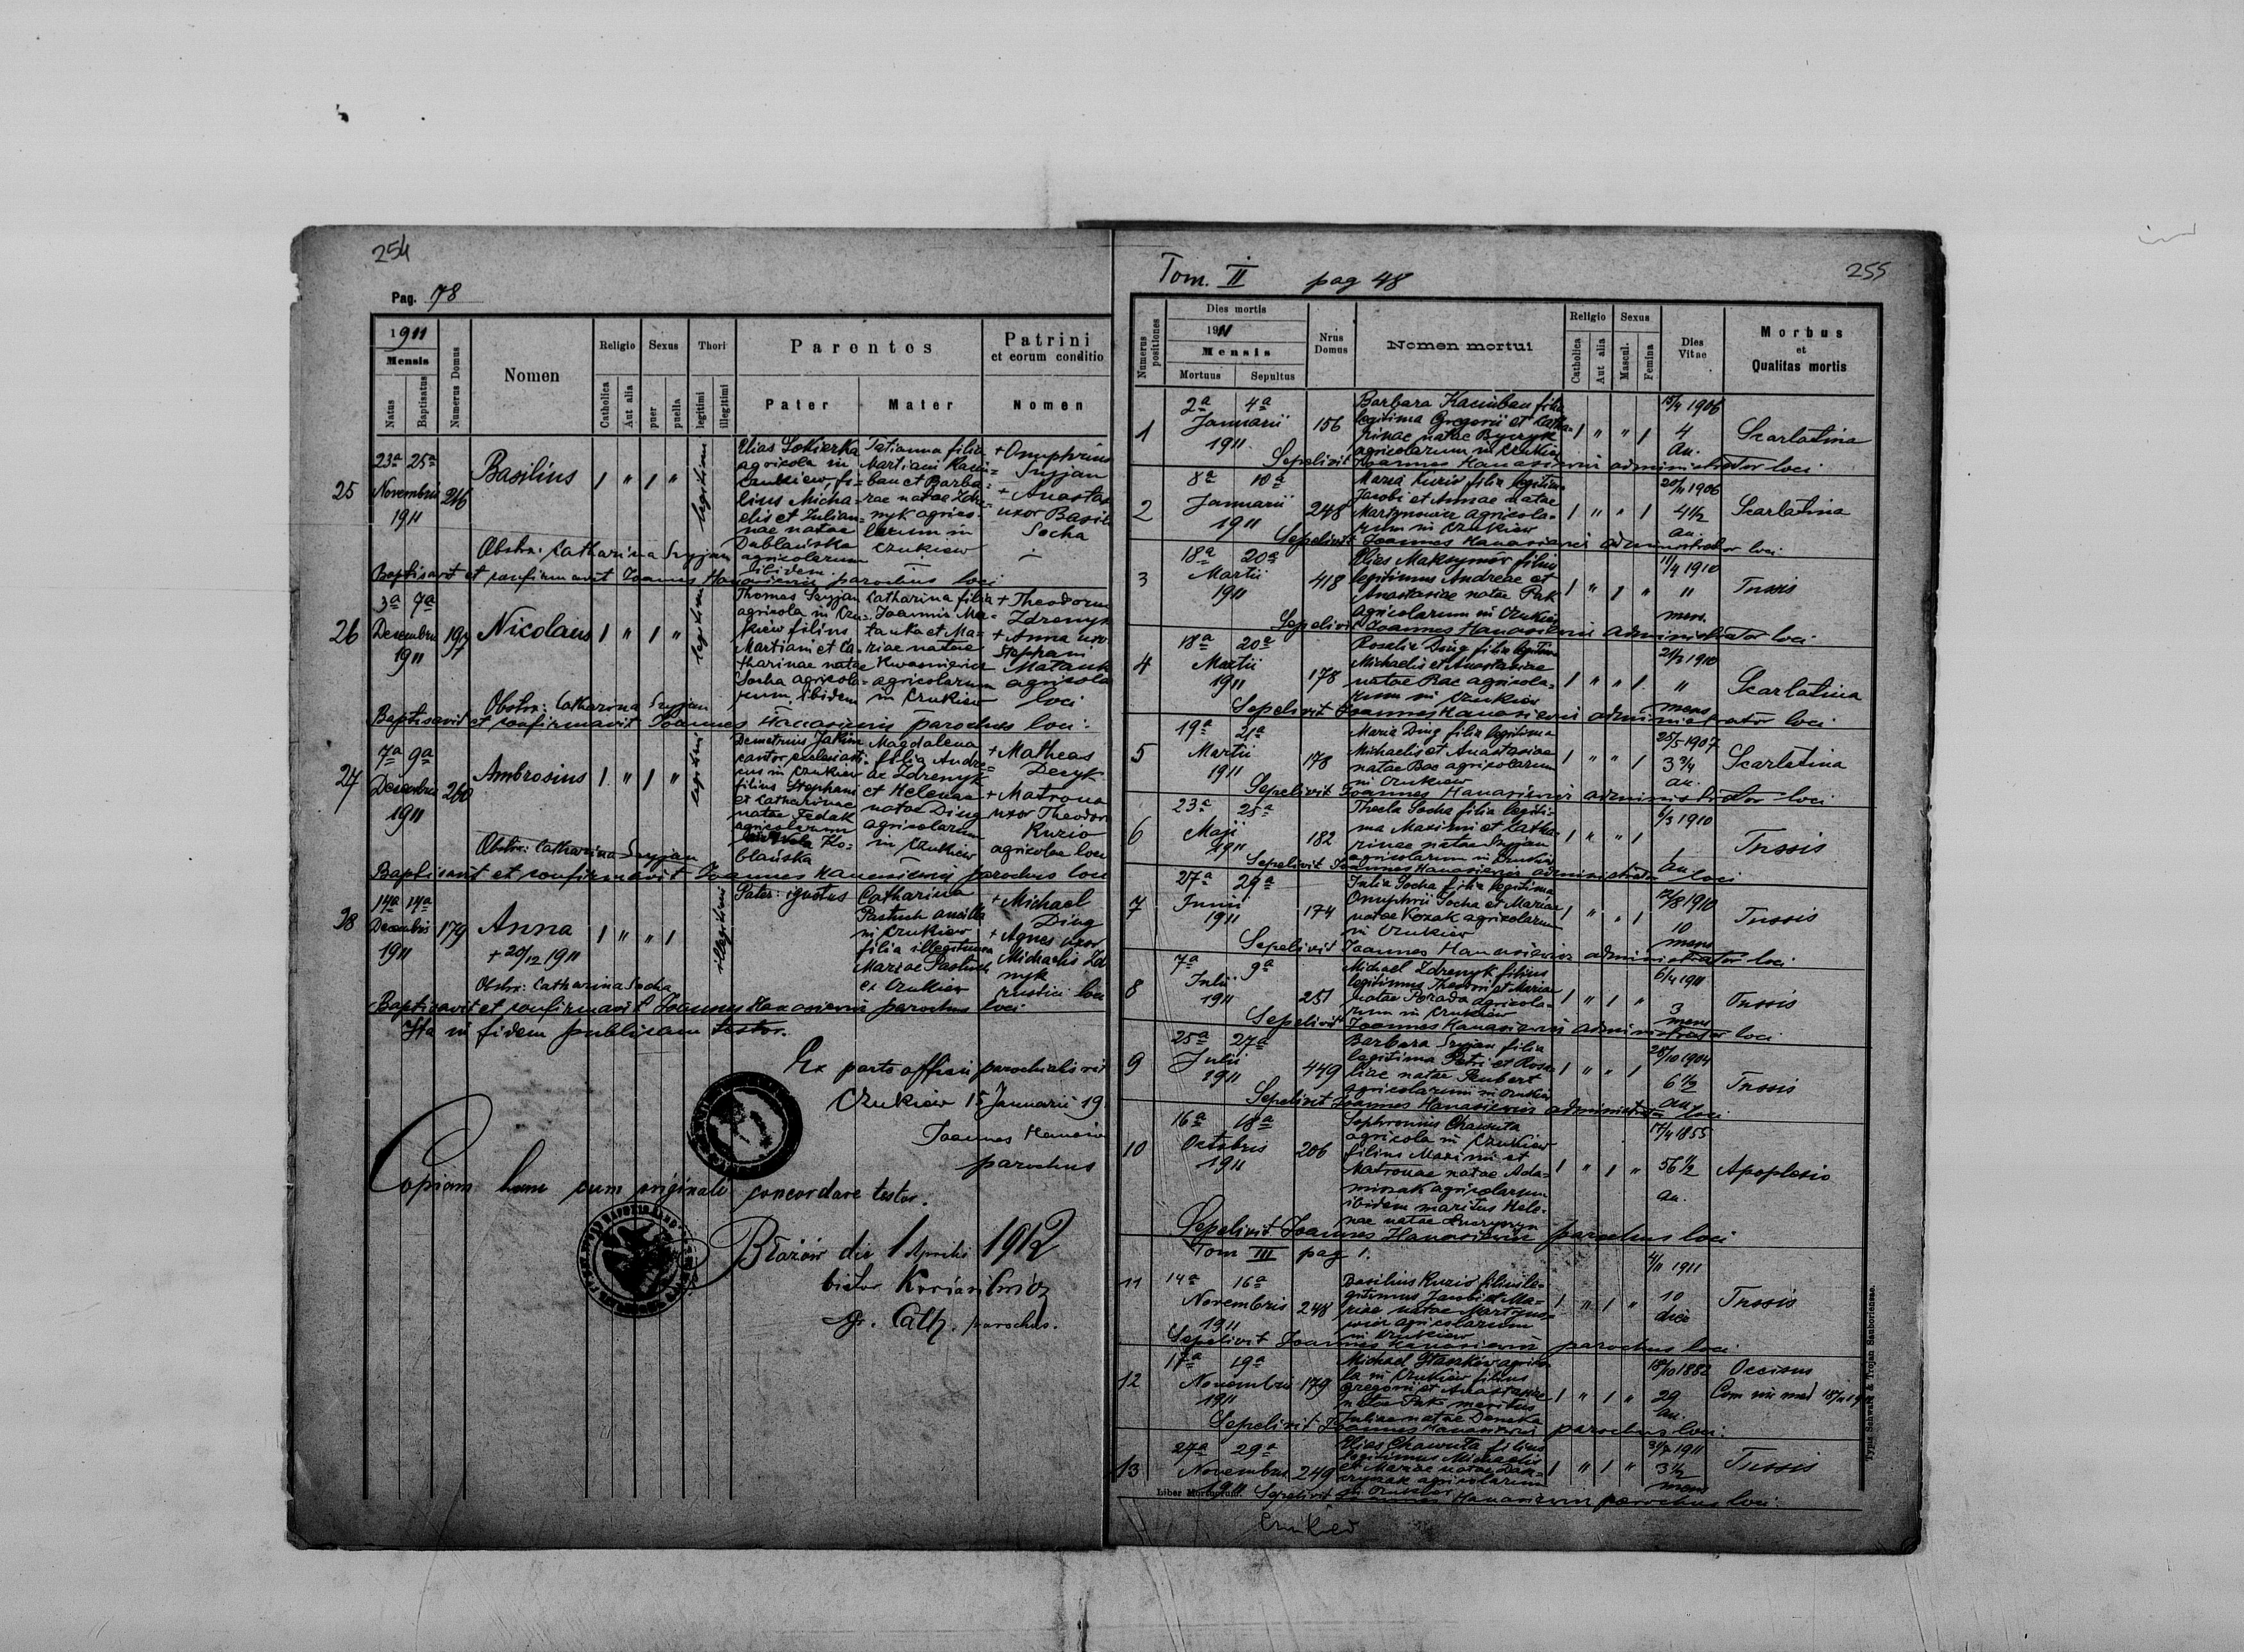 254
Pag. 78
1911
Mensis
Natus
Baptisatus
Numerus Domus
Nomen
Religio
Catholica
Aut alia
Sexus
puer
puella
Thori
legitimi
illegitimi
Parentes
Pater
Mater
Patrini
et eorum conditio
Nomen
25
23a 25a
Novembris
1911
216
Basilius
1 " 1 "
legitimi
Elias Sokierka
agricola in
filius Micha-
elis et Julian-
nae natae
Dublańska
agricolarum
ibidem
Tatianna filia
Martiani
ban et Barba-
rae natae Zdre-
nyk agrico-
larum in
Czukiew
+ Onuphrius
Syjan
+ Anastas
uxor Basil
Socha
Obstr: Catharina
Baptisavit et confirmavit Joannes Hanasiewicz parochus loci
26
3a 7a
Decembris
1911
197
Nicolaus
1 " 1 "
legitimi
Thomas
agricola in Czu-
kiew filius
Martiani et Ca-
tharinae natae
Socha agricola-
rum ibidem
Catharina filia
Joannis Ma-
tauka et Ma-
riae natae
Kwasniewicz
agricolarum
in Czukiew
+ Theodorus
Zdrenyk
+ Anna uxo
Stephani
Matauk
agricola
loci
Obstr: Catharina
Baptisavit et confirmavit Joannes Hanasiewicz parochus loci
27
7a 9a
Decembris
1911
260
Ambrosius
1 " 1 "
legitimi
Demetrius Jakim
cantor ecclesiasti-
cus in Czukiew
filius Stephani
et Catharinae
natae Fedak
agricolarum
Ko-
blańska
Magdalena
filia Andre-
ae Zdrenyk
et Helenae
natae Ding
agricolarum
in Czukiew
+ Matheas
Deryk
+ Matrona
uxor Theodor
Kuzio
agricolae loci
Obstr: Catharina
Baptisavit et confirmavit Joannes Hanasiewicz parochus loci
28
14a 14a
Decembris
1911
179
Anna
+ 20/12 1911
1 " " 1
illegitimi
Pater: ignotus
Catharina
Pastuch ancilla
in Czukiew
filia illegitima
Mariae Pastuch
ex Czukiew
+ Michael
Ding
+ Agnes uxor
Michaelis Zd
nyk
rustici loci
Obstr: Catharina Socha
Baptisavit et confirmavit Joannes Hanasiewicz parochus loci
Ita in fidem publicam testor.
Ex parte officii parochialis
Czukiew 15 Januarii 19
Joannes Hanasie
parochus
Copiam hanc cum originali concordare testor.
Błażów die 1 Aprilis 1912
gr. Cath. parochus.
255
Tom. II pag 48
Numerus positiones
Dies mortis
1911
Mensis
Mortuus
Sepultus
Nrus Domus
Nomen mortui
Religio
Catholica
Aut alia
Sexus
Mascul.
Femina
Dies Vitae
Morbus
et
Qualitas mortis
1
2a 4a
Januarii
1911
156
Barbara Kaczniban filia
legitima Gregorii et Catha-
rinae natae Byczyk
agricolarum in Czukiew
1 " " 1
1906
4
an.
Scarlatina
Sepelivit Joannes Hanasiewicz administrator loci
2
8a 10a
Januarii
1911
248
Maria Kuzio filia legitima
Jacobi et Annae natae
Martynowicz agricola-
rum in Czukiew
1 " " 1
20/11 1906
4 1/2
an.
Scarlatina
Sepelivit Joannes Hanasiewicz administrator loci
3
18a 20a
Martii
1911
418
Elias Maksymów filius
legitimus Andreae et
Anastasiae natae Pak
agricolarum in Czukiew
1 " 1 "
11/4 1910
11
mens.
Tussis
Sepelivit Joannes Hanasiewicz administrator loci
4
18a 20a
Martii
1911
178
Rosalia Ding filia legitima
Michaelis et Anastasiae
natae Bac agricola-
rum in Czukiew
1 " " 1
1910
11
mens
Scarlatina
Sepelivit Joannes Hanasiewicz administrator loci
5
19a 21a
Martii
1911
178
Maria Ding filia legitima
Michaelis et Anastasiae
natae Bac agricolarum
in Czukiew
1 " " 1
25/5 1907
3 3/4
an.
Scarlatina
Sepelivit Joannes Hanasiewicz administrator loci
6
23a 25a
Maji
1911
182
Thecla Socha filia legiti-
ma Maximi et Catha-
rinae natae
agricolarum in Czukiew
1 " " 1
6/3 1910
1
an
Tussis
Sepelivit Joannes Hanasiewicz administrator loci
7
27a 29a
Junii
1911
174
Julia Socha filia legitima
Onuphrii Socha et Mariae
natae Kozak agricolarum
in Czukiew
1 " " 1
12/8 1910
10
mens
Tussis
Sepelivit Joannes Hanasiewicz administrator loci
8
7a 9a
Julii
1911
251
Michael Zdrenyk filius
legitimus Theodori et Mariae
natae Porada agricola-
rum in Czukiew
1 " 1 "
6/4 1911
3
mens
Tussis
Sepelivit Joannes Hanasiewicz administrator loci
9
25a 27a
Julii
1911
449
Barbara filia
legitima Petri et Rosa-
liae natae
agricolarum in Czukiew
1 " " 1
28/10 1904
6 1/2
an
Tussis
Sepelivit Joannes Hanasiewicz administrator loci
10
16a 18a
Octobris
1911
206
Sophronius Chawuta
agricola in Czukiew
filius Maximi et
Matronae natae Ada-
miszak agricolarum
ibidem maritus Hele-
nae natae
1 " 1 "
17/4 1855
56 1/2
an.
Apoplesio
Sepelivit Joannes Hanasiewicz parochus loci
Tom III pag 1.
11
14a 16a
Novembris
1911
248
Basilius Kuzio filius le-
gitimus Jacobi et Ma-
riae natae Martyno-
wicz agricolarum
in Czukiew
1 " 1 "
4/11 1911
10
dies
Tussis
Sepelivit Joannes Hanasiewicz parochus loci
12
17a 19a
Novembris
1911
179
Michael Staszków agrico-
la in Czukiew filius
Gregorii et Anastasiae
natae Pak maritus
Juliae natae Deneka
1 " 1 "
18/10 1882
29
an.
Occisus
Sepelivit Joannes Hanasiewicz parochus loci
13
27a 29a
Novembris
1911
249
Elias Chawuta filius
legitimus Michaelis
et Mariae natae
agricolarum
in Czukiew
1 " 1 "
1911
3 1/2
mens
Tussis
Liber Mortuorum. Sepelivit Joannes Hanasiewicz parochus loci
Czukiew
Typis Schwarz & Trojan Samboriensae.